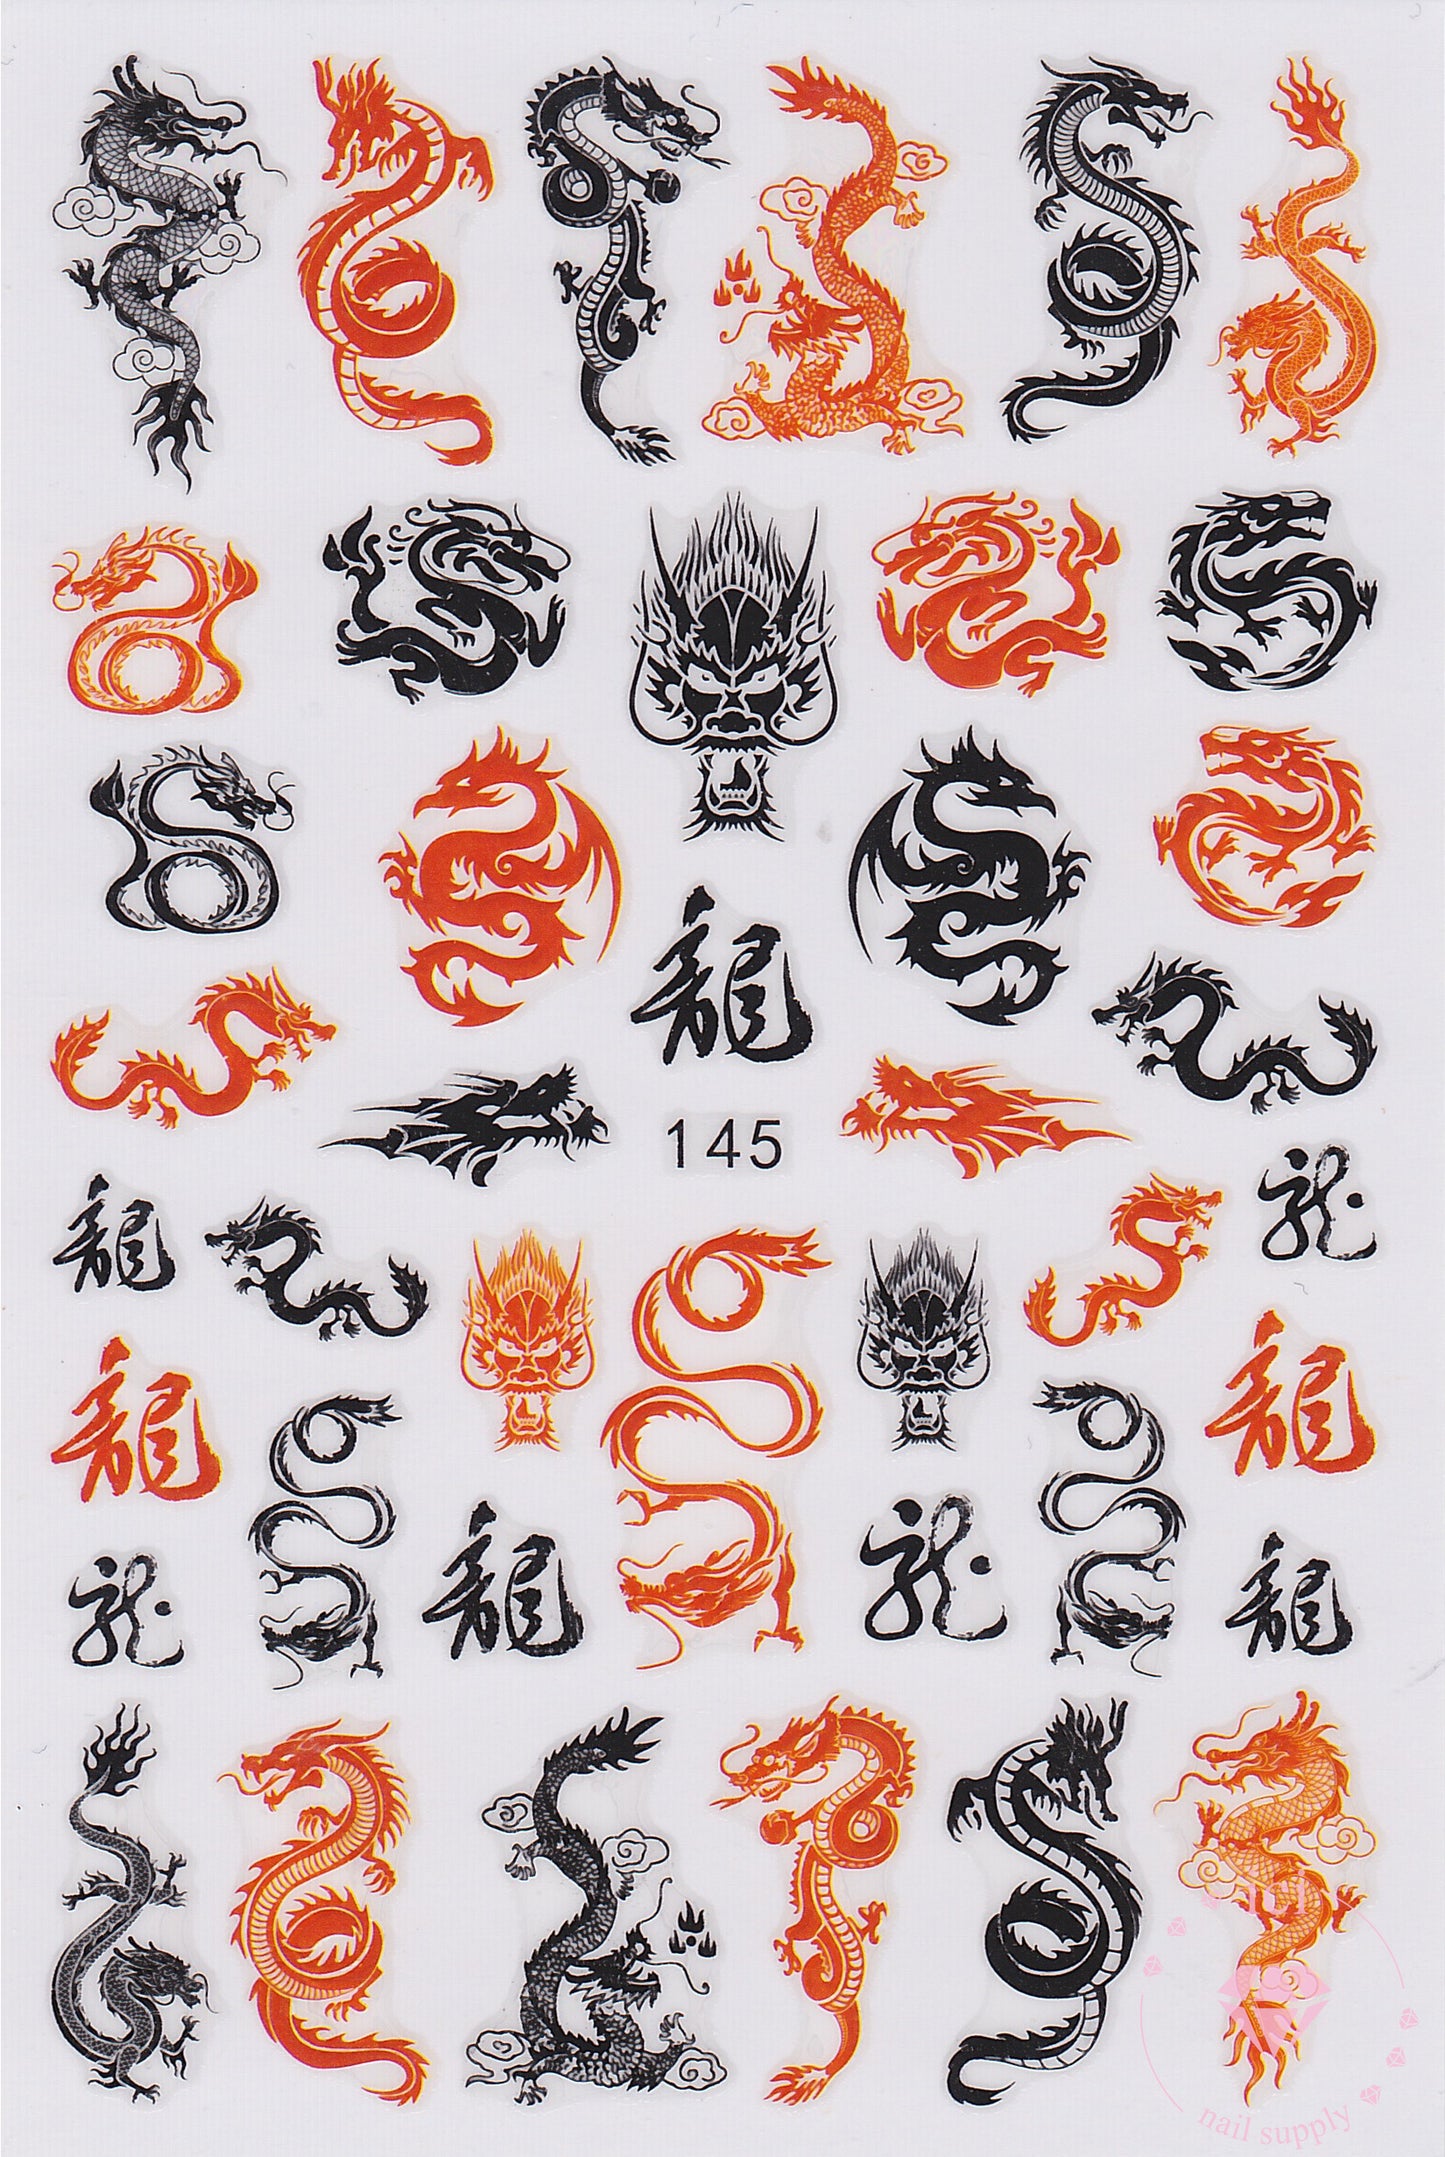 龍
145
龍
龙
龍
龍
龙
龍
龙
龍
nail supply